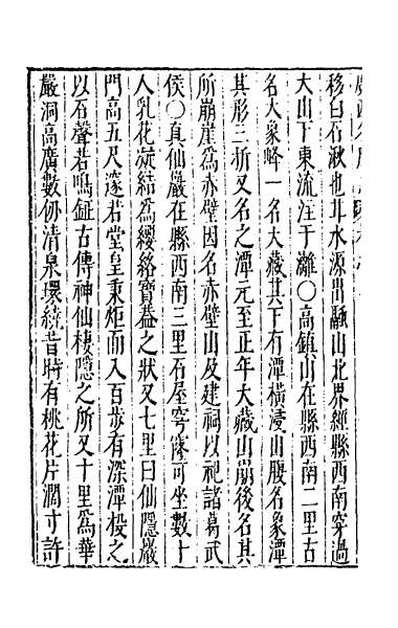 移曰石湫也其水源出融山北界經縣西南穿過
大山下東流注于灕○高鎮山在縣西南二里古
名大象峰一名大藏其下有潭橫浸山腹名象潭
其形三折又名之潭元至正年大藏山崩後名其
所崩崖爲赤壁因名赤壁山及建祠以祀諸葛武
侯○真仙巖在縣西南三里石屋穹窿可坐數十
人乳花凝結爲纓絡寶蓋之狀又七里曰仙隱巖
門高五尺邃若堂皇秉炬而入百步有深潭投之
以石聲若鳴鉦古傳神仙棲隱之所又十里爲華
巖洞高廣數仞清泉環繞昔時有桃花片濶寸許